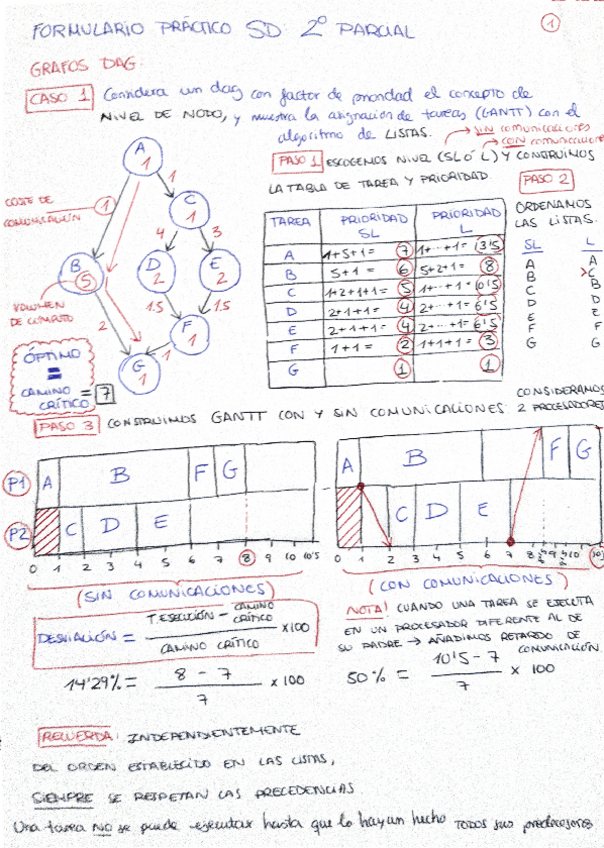 FORMULARIO PRÁCTICO SD 2º PARCIAL
1
GRAFOS DAG:
CASO 1 Considera un dag con factor de prioridad el concepto de
NIVEL DE NODO, y muestra la asignación de tareas (GANTT) con el
algoritmo de LISTAS.
SIN comunicaciones
CON comunicaciones
PASO 1 ESCOGEMOS NIVEL (SL Ó L) Y CONSTRUIMOS
LA TABLA DE TAREA Y PRIORIDAD.
PASO 2
ORDENAMOS
LAS LISTAS.
SL L
A A
B C
C B
D D
E E
F F
G G
COSTE DE
COMUNICACIÓN
1
A
1
1
C
1
4
3
B
5
D
2
E
2
VOLUMEN
DE CÓMPUTO
2
1.5
1.5
F
1
1
G
1
ÓPTIMO
=
CAMINO
CRÍTICO
= 7
TAREA PRIORIDAD SL PRIORIDAD L
A 1+5+1= 7 1+...+1=
B 5+1= 6 5+2+1= 8
C 1+2+1+1= 5 1+...+1=
D 2+1+1= 4 2+...+1= 6'5
E 2+1+1= 4 2+...+1= 6'5
F 1+1= 2 1+1+1= 3
G 1 1
CONSIDERAMOS
2 PROCESADORES
PASO 3 CONSTRUIMOS GANTT CON Y SIN COMUNICACIONES
P1 A B F G
P2 C D E
0 1 2 3 4 5 6 7 8 9 10 10'5
A B F G
C D E
0 1 2 3 4 5 6 7 8
(SIN COMUNICACIONES)
(CON COMUNICACIONES)
DESVIACIÓN = T. EJECUCIÓN - CAMINO CRÍTICO
CAMINO CRÍTICO
x100
14'29% = 8 - 7
7
x 100
NOTA! CUANDO UNA TAREA SE EJECUTA
EN UN PROCESADOR DIFERENTE AL DE
SU PADRE → AÑADIMOS RETARDO DE
COMUNICACIÓN
50% = 10'5 - 7
7
x 100
RECUERDA: INDEPENDIENTEMENTE
DEL ORDEN ESTABLECIDO EN LAS LISTAS,
SIEMPRE SE RESPETAN LAS PRECEDENCIAS.
Una tarea NO se puede ejecutar hasta que lo hayan hecho TODOS sus predecesores